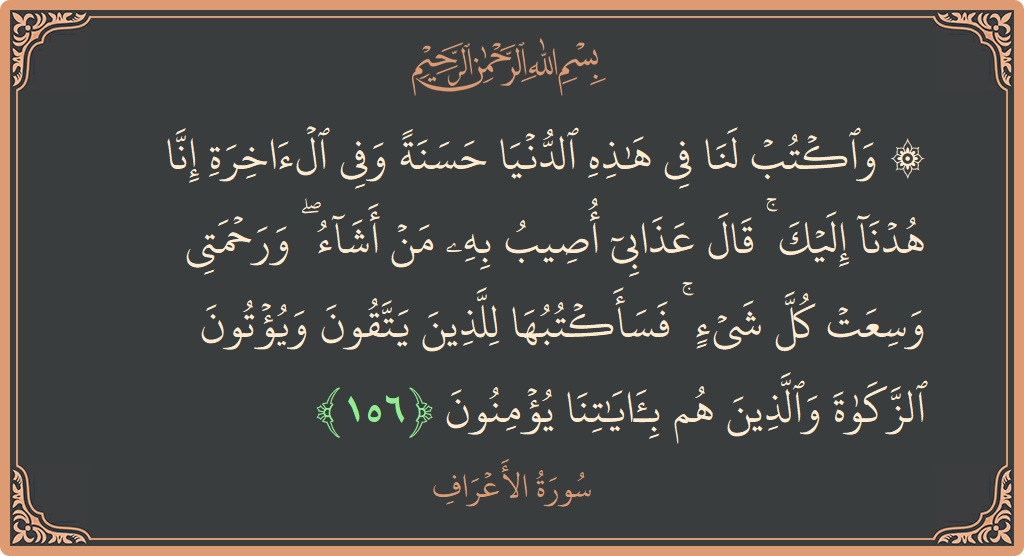 بِسْمِ اللَّهِ الرَّحْمَٰنِ الرَّحِيمِ
۞ وَٱكْتُبْ لَنَا فِى هَٰذِهِ ٱلدُّنْيَا حَسَنَةً وَفِى ٱلْءَاخِرَةِ إِنَّا
هُدْنَآ إِلَيْكَ ۚ قَالَ عَذَابِىٓ أُصِيبُ بِهِۦ مَنْ أَشَآءُ ۖ وَرَحْمَتِى
وَسِعَتْ كُلَّ شَىْءٍ ۚ فَسَأَكْتُبُهَا لِلَّذِينَ يَتَّقُونَ وَيُؤْتُونَ
ٱلزَّكَوٰةَ وَٱلَّذِينَ هُم بِـَٔايَٰتِنَا يُؤْمِنُونَ ﴿١٥٦﴾
سُورَةُ الأَعْرَافِ